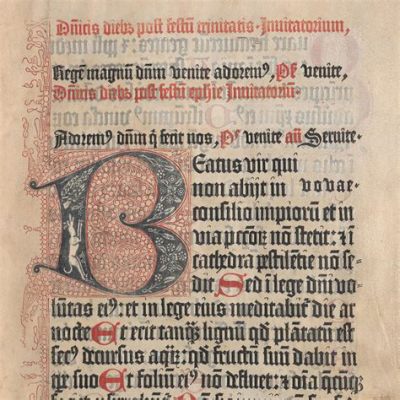 Dn̄icis diebꝫ post festū trinitatis. Inuitatorium,
Regē magnū dn̄m venite adorem⁹, Ps̄ venite,
Dn̄icis diebꝫ post festū ephie Inuitatoriū.
Adorem⁹ dn̄m q̇ fecit nos, Ps̄ venite añ Seruite.
BEatus vir qui
non abijt in vovae.
consilio impiorū et in
via pctōꝝ nō stetit: ⁊ ī
cathedra pestilētie nō se-
dit Sed ī lege dn̄i vo-
lūtas ei⁹: et in lege eius meditabit᷑ die ac
nocte Et erit tanq̄ꝫ lignū qd̓ plātatū est
sec⁹ decursus aq̄ꝝ: qd̓ fructū suū dabit in
tp̄e suo Et foliū ei⁹ nō defluet: ⁊ oīa q̄cūqꝫ